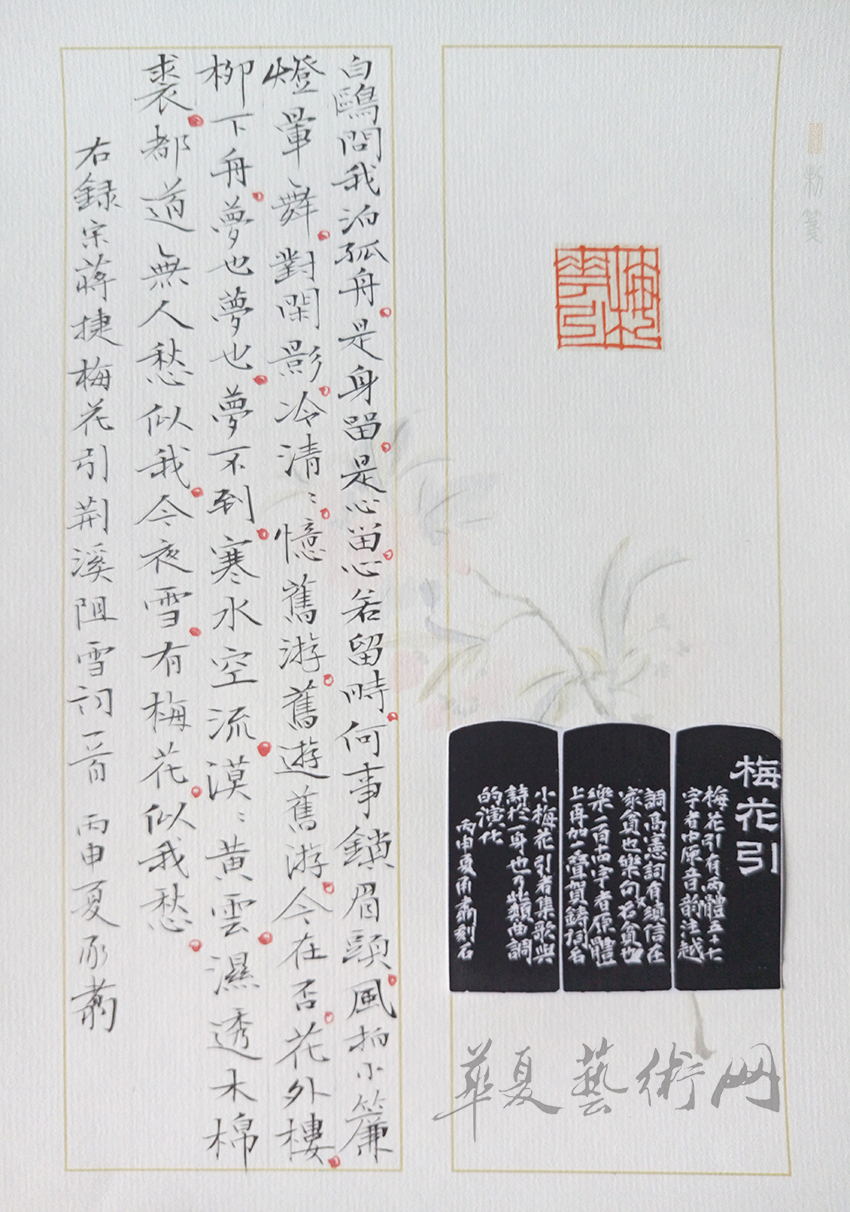 梅花引
梅花引
梅花引有兩體五十七
字者中原音韵注越
調高憲詞有須信在
家貧也樂句名貧也
樂一百四字者原體
上再加一疊賀鑄詞名
小梅花引者集歌與
詩於一身也乃此類曲調
的演化
丙申夏刻石
白鷗問我泊孤舟是身畱是心畱心若留時何事鎖眉頭風拍小簾
燈暈舞對閑影冷清〻憶舊游舊遊舊游今在否花外樓
柳下舟夢也夢也夢不到寒水空流漠〻黃雲濕透木棉
裘都道無人愁似我今夜雪有梅花似我愁
右録宋蔣捷梅花引荆溪阻雪詞一首 丙申夏承
華夏藝術网